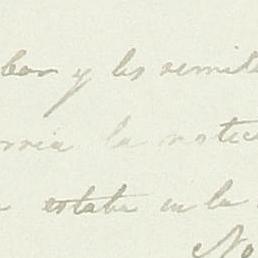 bor y les remit
la notic
estaba en la
No